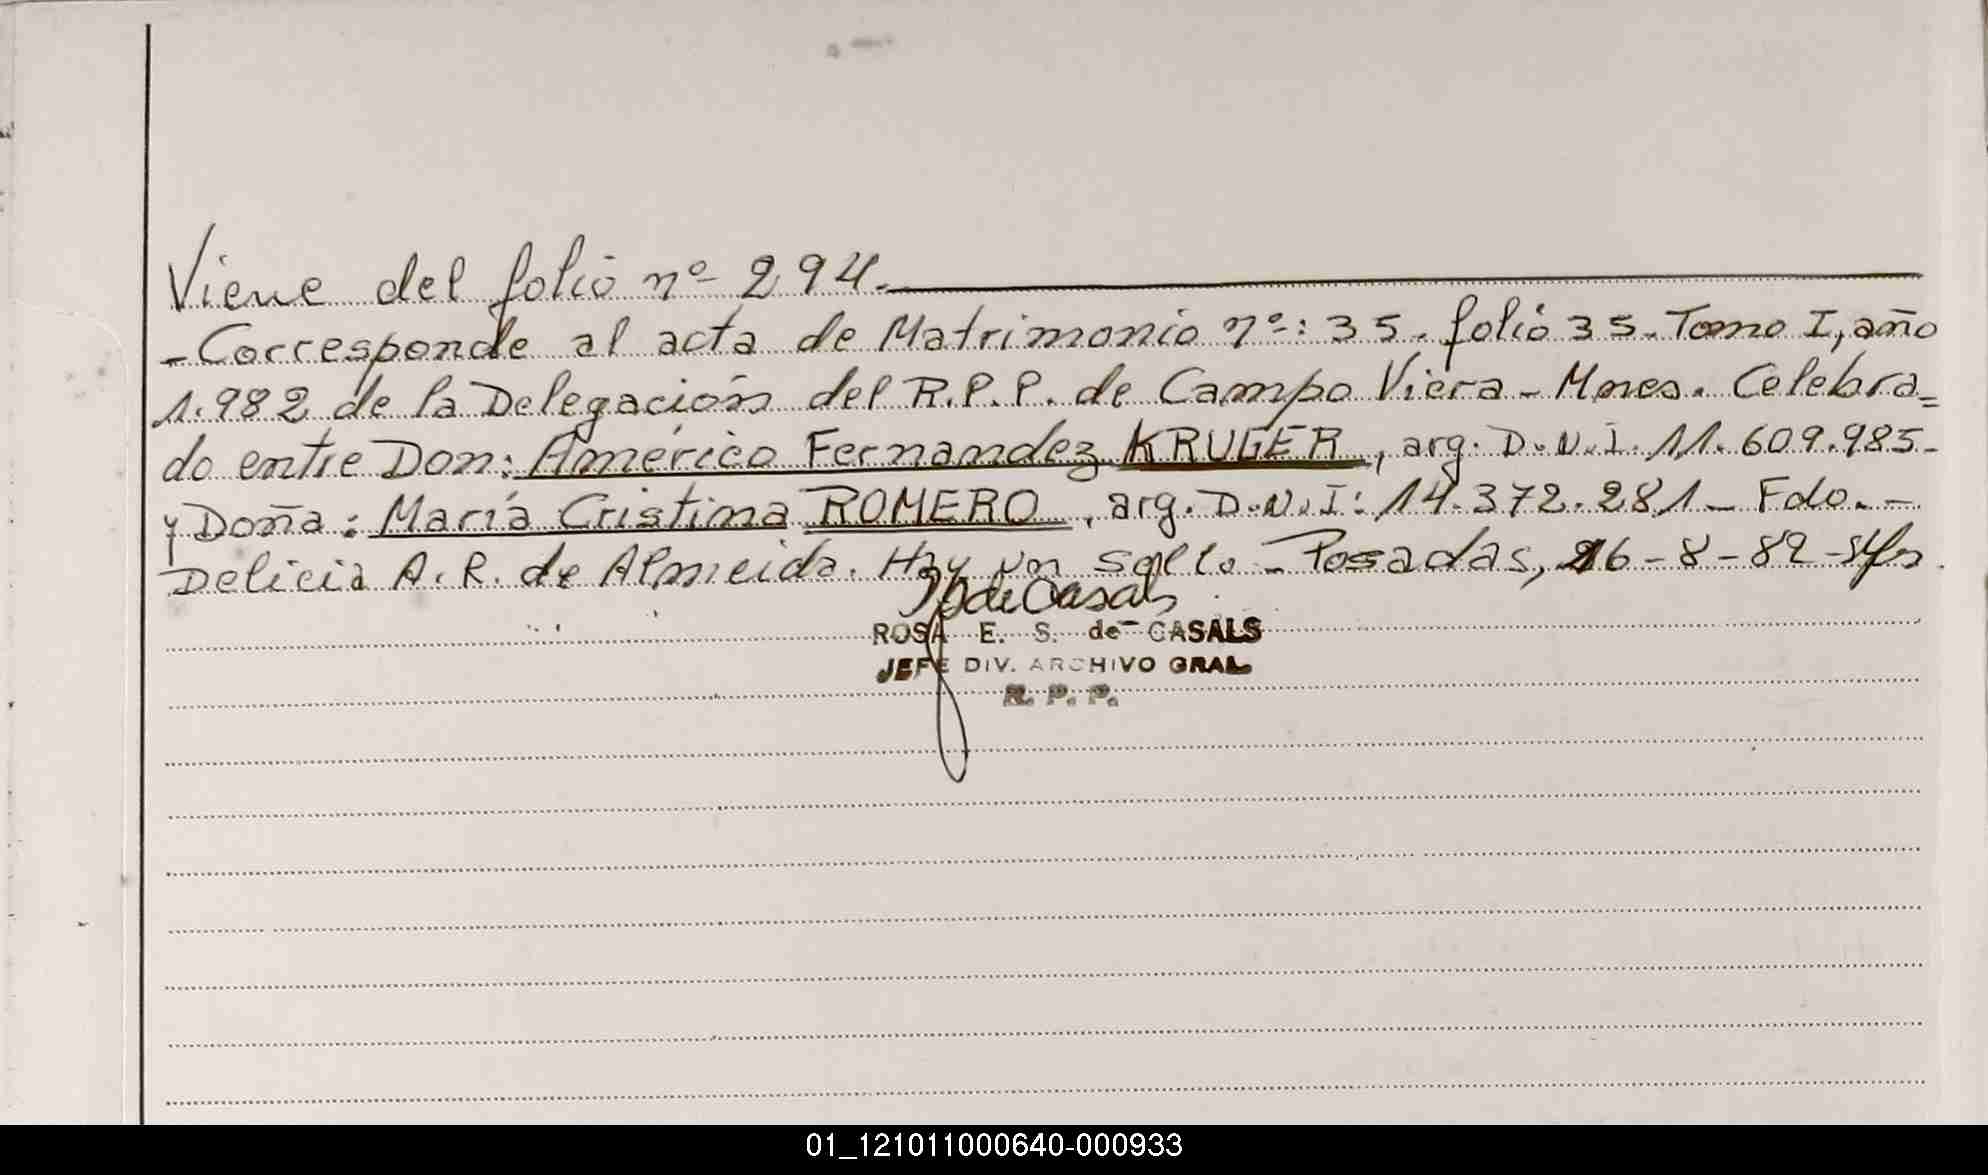 Viene del folio nº 294.
- Corresponde al acta de Matrimonio nº: 35. folio 35. Tomo I, año
1.982 de la Delegación del R.P.P. de Campo Viera - Mnes. Celebra=
do entre Don: Américo Fernandez KRUGER, arg. D.N.I. 11.609.985-
y Doña: María Cristina ROMERO, arg. D.N.I: 14.372.281 - Fdo. -
Delicia A. R. de Almeida. Hay un sello. - Posadas, 26-8-82-
de Casals
ROSA E. S. de CASALS
JEFE DIV. ARCHIVO GRAL
R. P. P.
01_121011000640-000933